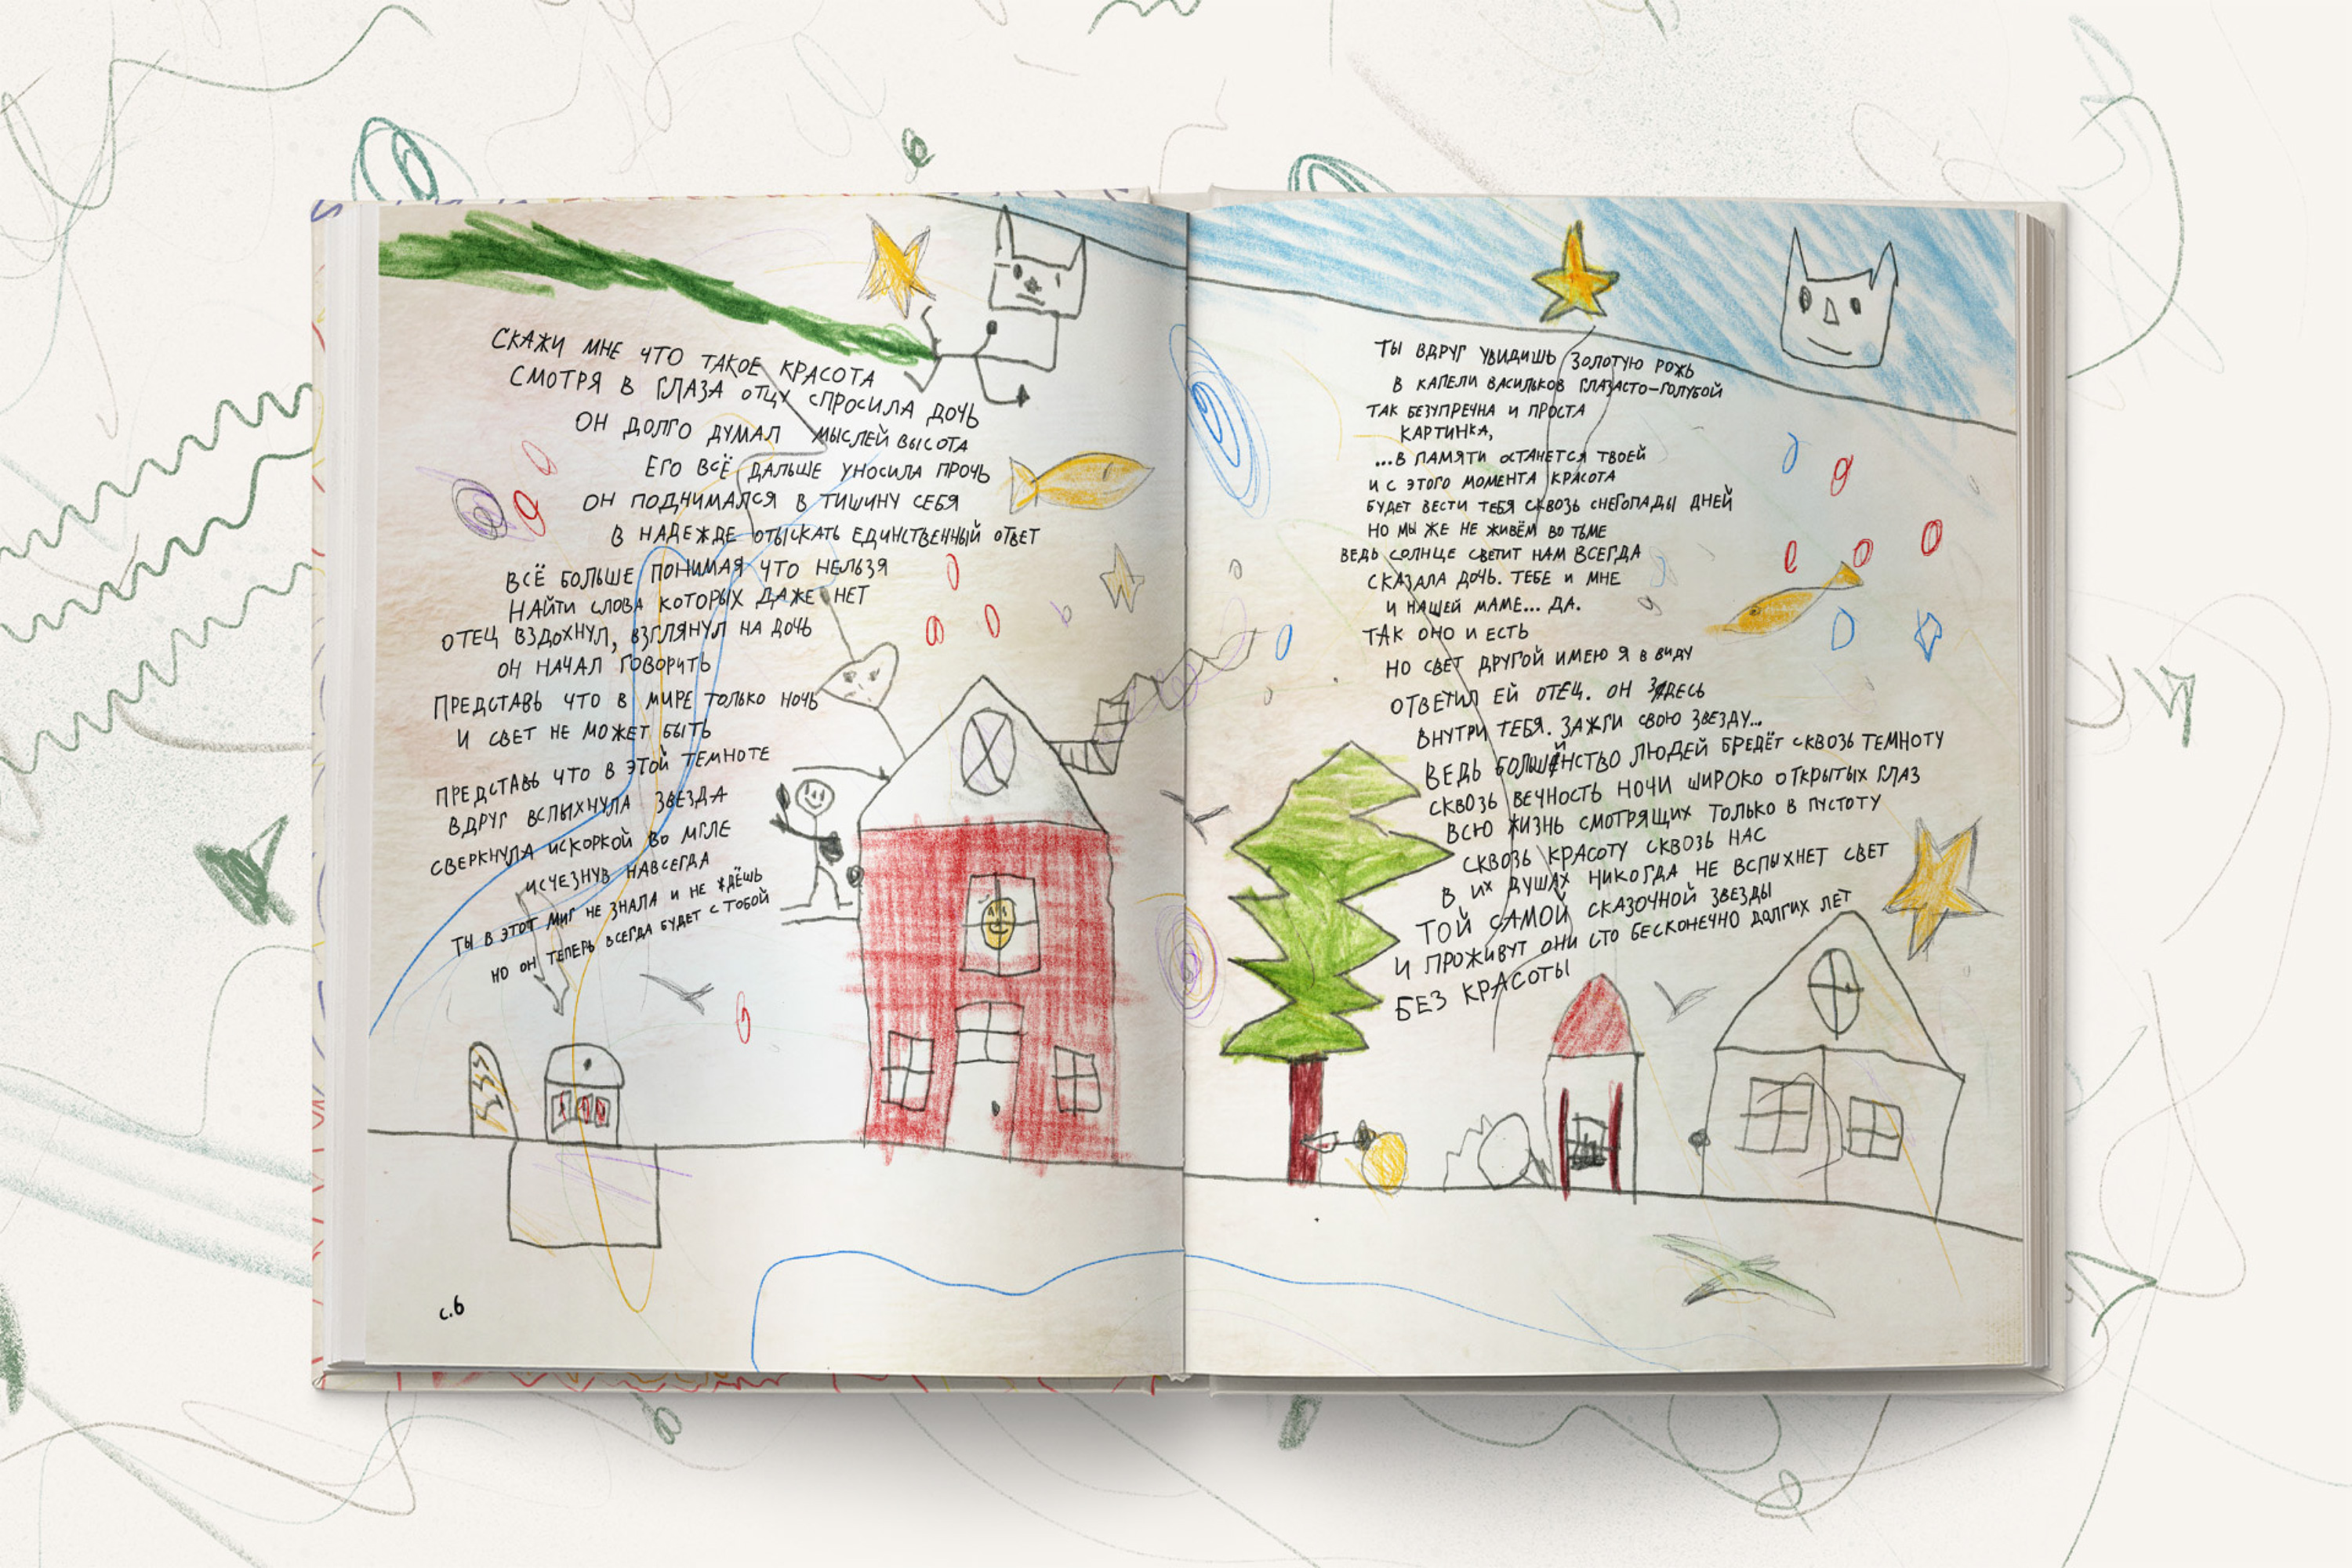 СКАЖИ МНЕ ЧТО ТАКОЕ КРАСОТА
СМОТРЯ В ГЛАЗА ОТЦУ СПРОСИЛА ДОЧЬ
ОН ДОЛГО ДУМАЛ МЫСЛЕЙ ВЫСОТА
ЕГО ВСЁ ДАЛЬШЕ УНОСИЛА ПРОЧЬ
ОН ПОДНИМАЛСЯ В ТИШИНУ СЕБЯ
В НАДЕЖДЕ ОТЫСКАТЬ ЕДИНСТВЕННЫЙ ОТВЕТ
ВСЁ БОЛЬШЕ ПОНИМАЯ ЧТО НЕЛЬЗЯ
НАЙТИ СЛОВА КОТОРЫХ ДАЖЕ НЕТ
ОТЕЦ ВЗДОХНУЛ, ВЗГЛЯНУЛ НА ДОЧЬ
ОН НАЧАЛ ГОВОРИТЬ
ПРЕДСТАВЬ ЧТО В МИРЕ ТОЛЬКО НОЧЬ
И СВЕТ НЕ МОЖЕТ БЫТЬ
ПРЕДСТАВЬ ЧТО В ЭТОЙ ТЕМНОТЕ
ВДРУГ ВСПЫХНУЛА ЗВЕЗДА
СВЕРКНУЛА ИСКОРКОЙ ВО МГЛЕ
ИСЧЕЗНУВ НАВСЕГДА
ТЫ В ЭТОТ МИГ НЕ ЗНАЛА И НЕ ЖДЁШЬ
НО ОН ТЕПЕРЬ ВСЕГДА БУДЕТ С ТОБОЙ
с.6
ТЫ ВДРУГ УВИДИШЬ ЗОЛОТУЮ РОЖЬ
В КАПЕЛИ ВАСИЛЬКОВ ГЛАЗАСТО-ГОЛУБОЙ
ТАК БЕЗУПРЕЧНА И ПРОСТА
КАРТИНКА,
...В ПАМЯТИ ОСТАНЕТСЯ ТВОЕЙ
И С ЭТОГО МОМЕНТА КРАСОТА
БУДЕТ ВЕСТИ ТЕБЯ СКВОЗЬ СНЕГОПАДЫ ДНЕЙ
НО МЫ ЖЕ НЕ ЖИВЁМ ВО ТЬМЕ
ВЕДЬ СОЛНЦЕ СВЕТИТ НАМ ВСЕГДА
СКАЗАЛА ДОЧЬ. ТЕБЕ И МНЕ
И НАШЕЙ МАМЕ... ДА.
ТАК ОНО И ЕСТЬ
НО СВЕТ ДРУГОЙ ИМЕЮ Я В ВИДУ
ОТВЕТИЛ ЕЙ ОТЕЦ. ОН ЗДЕСЬ
ВНУТРИ ТЕБЯ. ЗАЖГИ СВОЮ ЗВЕЗДУ...
ВЕДЬ БОЛЬШИНСТВО ЛЮДЕЙ БРЕДЁТ СКВОЗЬ ТЕМНОТУ
СКВОЗЬ ВЕЧНОСТЬ НОЧИ ШИРОКО ОТКРЫТЫХ ГЛАЗ
ВСЮ ЖИЗНЬ СМОТРЯЩИХ ТОЛЬКО В ПУСТОТУ
СКВОЗЬ КРАСОТУ СКВОЗЬ НАС
В ИХ ДУШАХ НИКОГДА НЕ ВСПЫХНЕТ СВЕТ
ТОЙ САМОЙ СКАЗОЧНОЙ ЗВЕЗДЫ
И ПРОЖИВУТ ОНИ СТО БЕСКОНЕЧНО ДОЛГИХ ЛЕТ
БЕЗ КРАСОТЫ